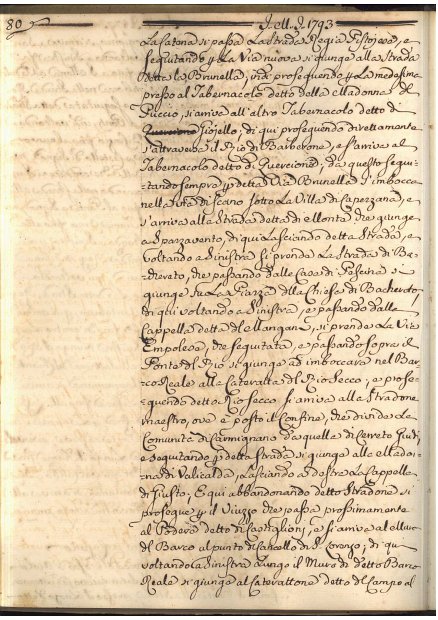 80
A dì d. 1793
La Catona si passa La strada Regia Pistojese, e
seguitando p. La Via nuova si giunge alla strada
detta la Brunella, indi proseguendo p. La medesima
presso al Tabernacolo detto della Madonna del
Puccio, si arriva all'altro Tabernacolo detto di
Quercione Giojello, di qui proseguendo direttamente
s'attraversa il Rio di Barberone, e s'arriva al
Tabernacolo detto di Quercione; da questo segui-
-tando sempre p. detta Via Brunella s'imbocca
nella di Seano sotto La Villa di Capezzana, e
s'arriva alla strada detta di che giunge
a Sparzavento, di qui Lasciando detta strada, e
Voltando a Sinistra si prende La strada di Ba-
-chereto, che passando dalle Case di Fossina si
giunge su La Piazza della Chiesa di Bacherto,
di qui voltando a Sinistra, e passando dalla
Cappella detta del Mangano, si prende La Via
Empolese, che seguitata, e passando sopra il
Ponte del Rio si giunge ad imboccare nel Bar-
-co Reale alla Cateratta del Rio Secco, e prose-
-guendo detto Rio secco si arriva alla stradone
maestro, ove è posto il Confine, che divide La
Comunità di Carmignano da quella di Cerreto Guidi,
e seguitando p. detta Strada si giunge alla Mado-
-na di Valicarda, Lasciando a destra La Cappella
di Giusto, E qui abbandonando detto Stradone si
prosegue p. il Viuzzo che passa prossimamente
al Podere detto di Castiglioni, e si arriva al Muro
del Barco al punto di Cancello di S. Lorenzo; di qui
voltando a Sinistra Lungo il Muro di detto Barco
Reale si giunge al Caterattone detto del Campo al